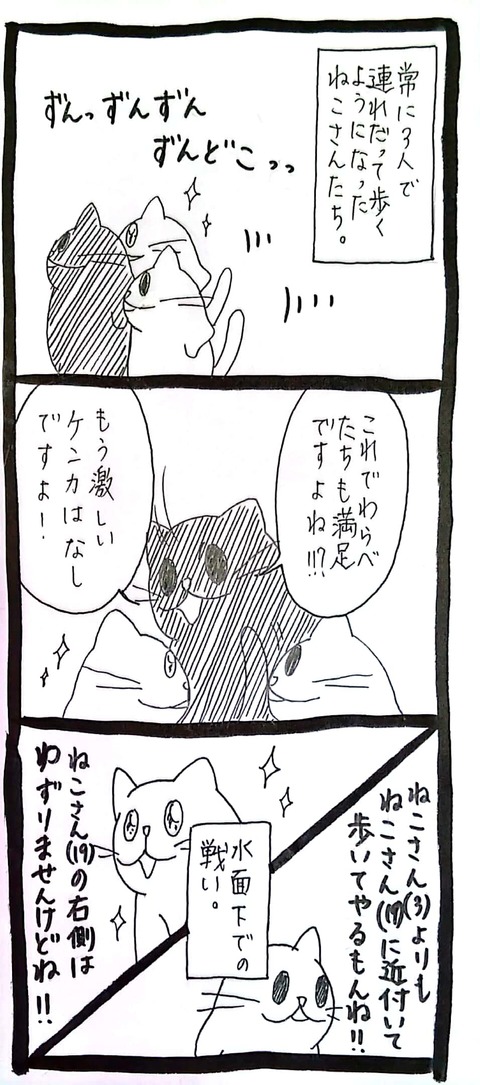 常に3人で
連れだって歩く
ようになった
ねこさんたち。
ずんっずんずん
ずんどこっっ
これでわらべ
たちも満足
ですよね!!?
もう激しい
ケンカはなし
ですよ!
ねこさん(3)よりも
ねこさん(19)に近付いて
歩いてやるもんね!!
水面下での
戦い。
ねこさん(19)の右側は
わずりませんけどね!!